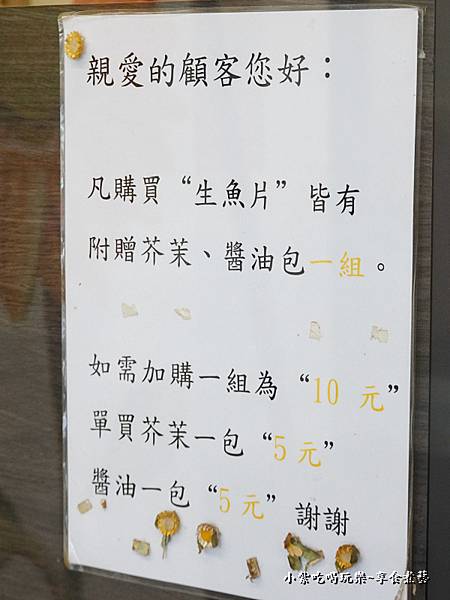 親愛的顧客您好：
凡購買“生魚片”皆有
附贈芥茉、醬油包一組。
如需加購一組為“10 元”
單買芥茉一包“5元”
醬油一包“5元”謝謝
小紫吃喝玩樂~享食煮藝